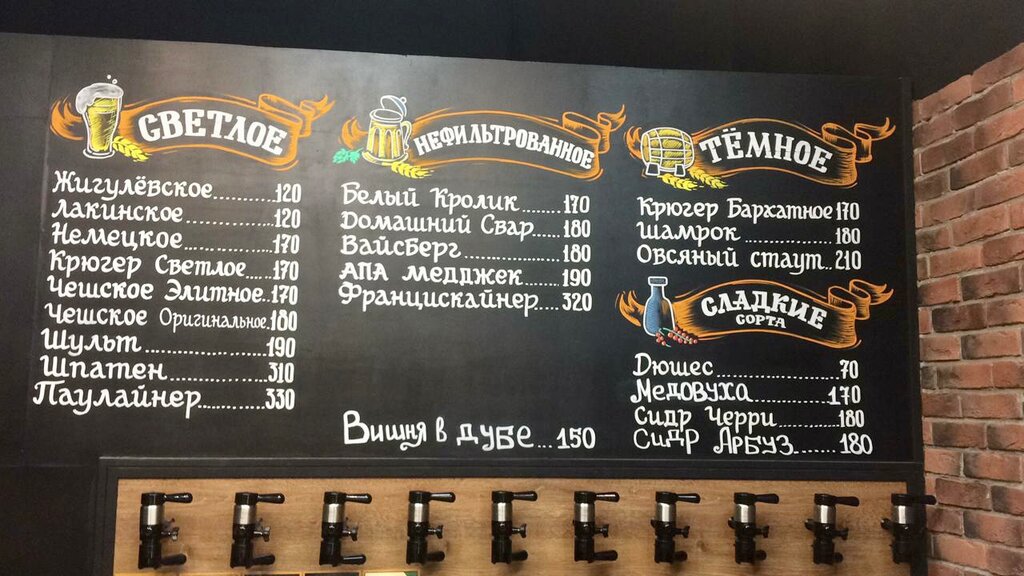 СВЕТЛОЕ
Жигулёвское........120
Лакинское............120
Немецкое............170
Крюгер Светлое....170
Чешское Элитное..170
Чешское Оригинальное.180
Шульт................190
Шпатен...............310
Паулайнер...........330
НЕФИЛЬТРОВАННОЕ
Белый Кролик......170
Домашний Свар....180
Вайсберг.............180
АПА медджек.......190
Францискайнер....320
Вишня в дубе...150
ТЁМНОЕ
Крюгер Бархатное 170
Шамрок............180
Овсяный стаут..210
СЛАДКИЕ
СОРТА
Дюшес................70
Медовуха...........170
Сидр Черри........180
Сидр Арбуз.......180